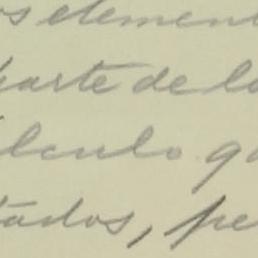 os element
parte de lo
lculo q
tados, pe